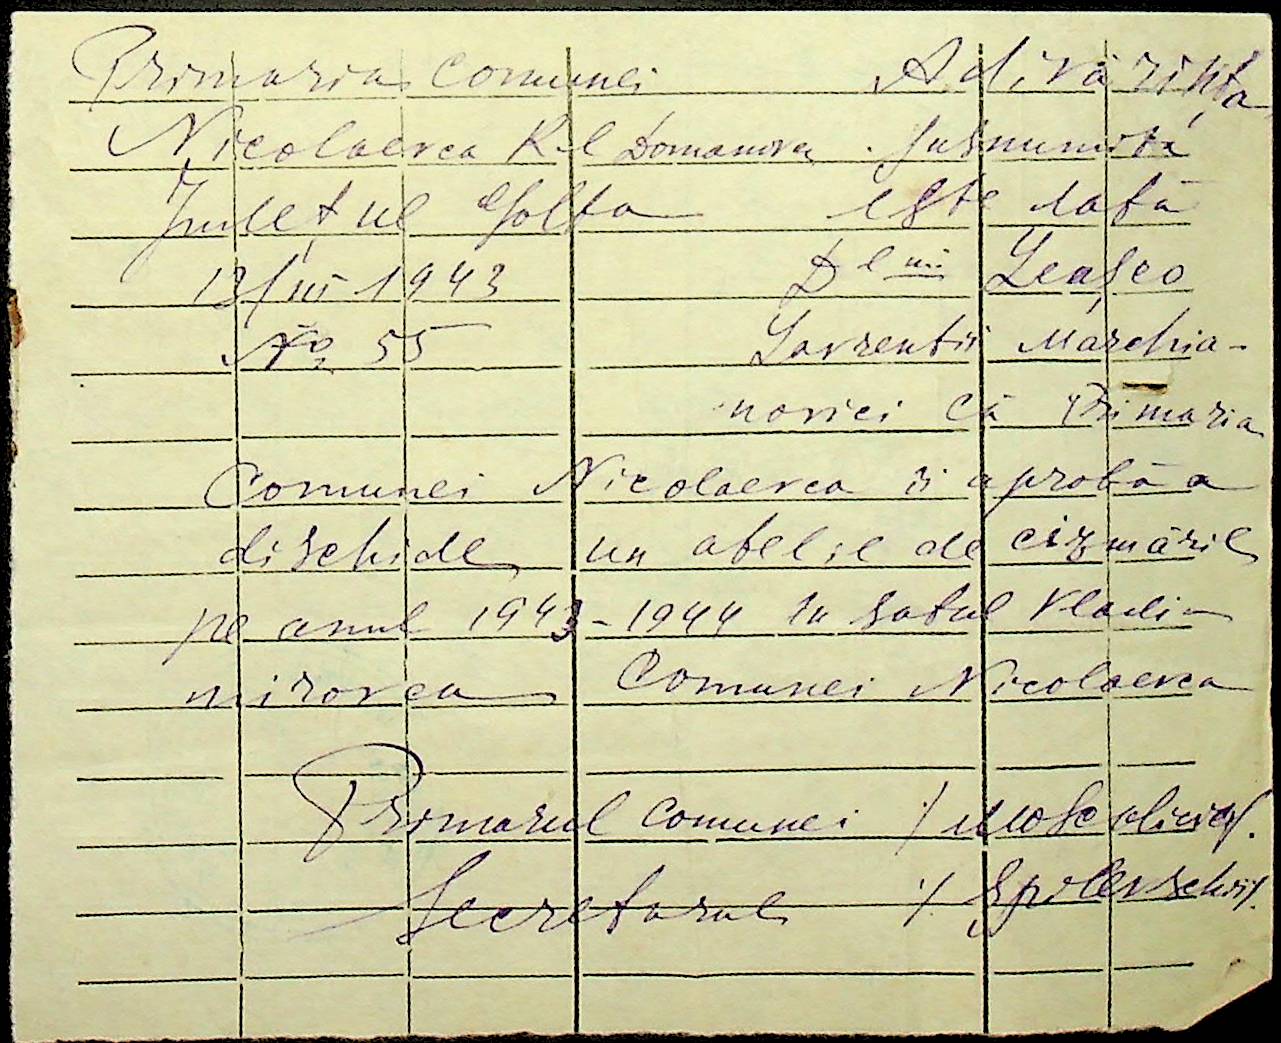 Primaria Comunei
Nicolaevca R-l Domanovca
Județul Golta
13/III 1943
№ 55
Adivărința
Susnumita
este dată
D lui Leașco
Lavrentii Marchia-
novici că Primaria
Comunei Nicolaevca ii aprobă a
dischide un atelie de cizmărie
pe anul 1943-1944 In satul Vladi-
mirovca Comunei Nicolaevca
Primarul Comunei /
Secretarul /